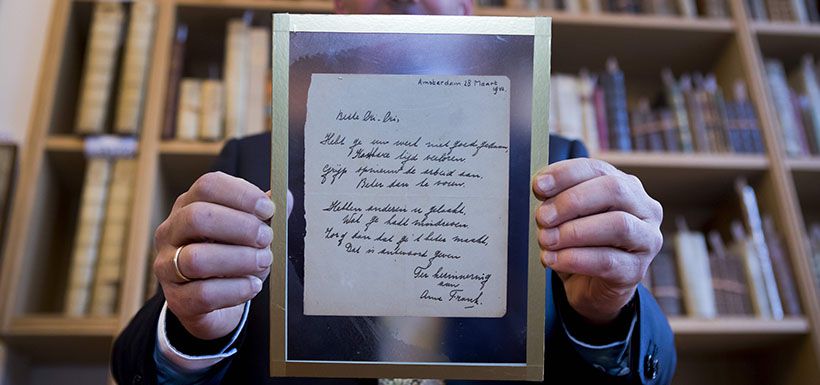 Amsterdam 28 Maart
1942.
Beste Cri-Cri,
Hebt ge uw werk niet goed gedaan,
Kostbare tijd verloren
Grijp opnieuw de arbeid aan.
Beter dan te voren.
Hebben anderen u gelaakt,
Wat ge hadt misdreven.
Zorg dan dat ge 't beter maakt,
Dat is antwoord geven
Ter herinnering
aan
Anne Frank.